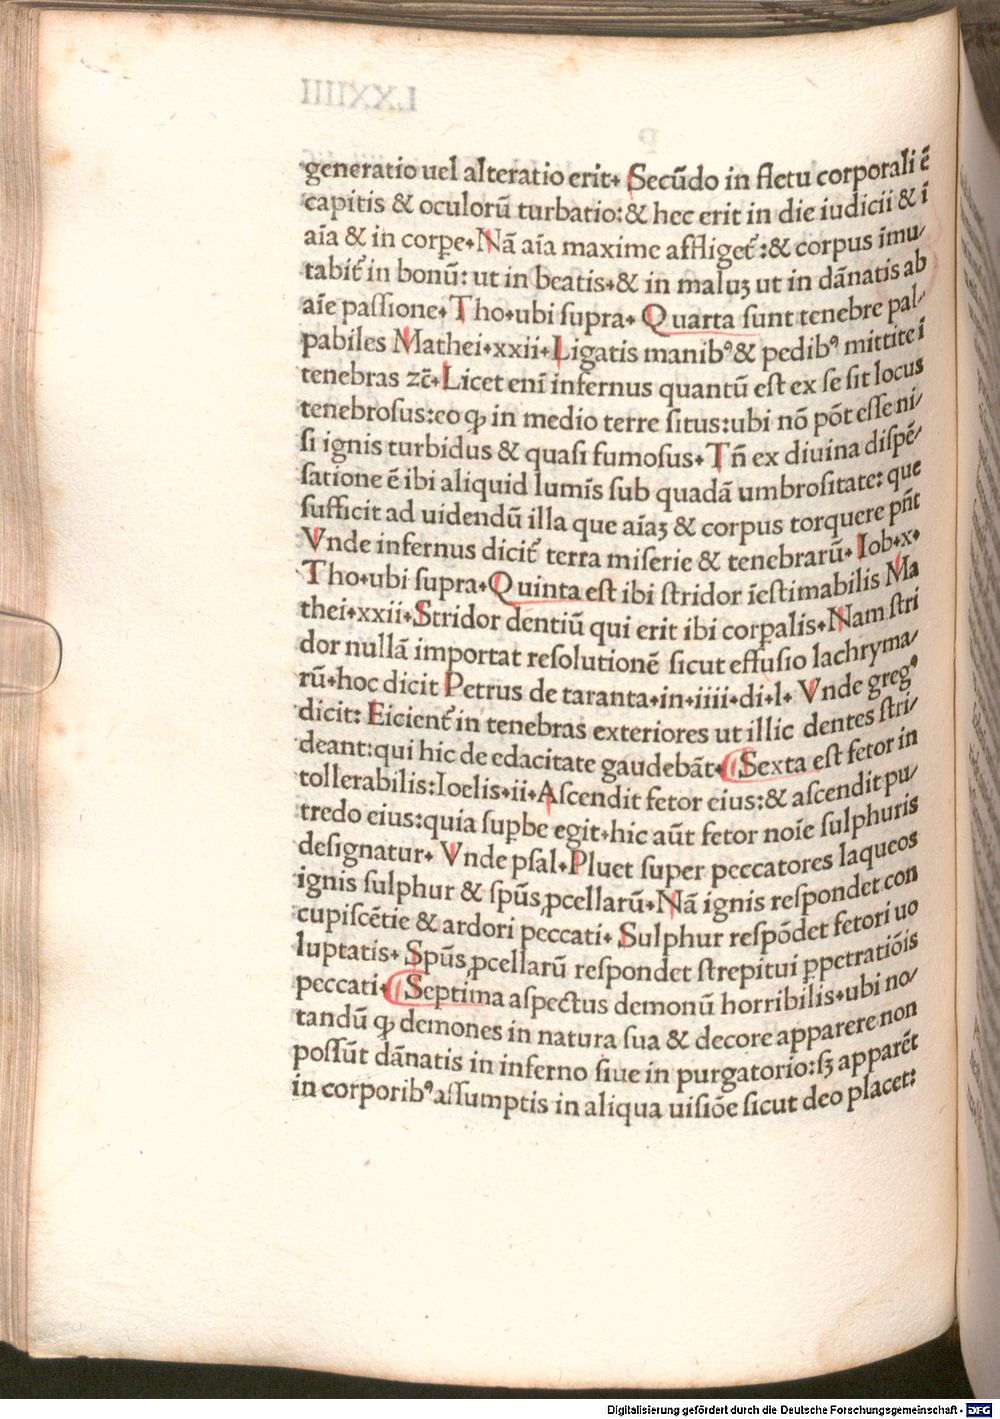 generatio uel alteratio erit. Secūdo in fletu corporali ē
capitis & oculorū turbatio:& hec erit in die iudicii & ī
aīa & in corꝑe. Nā aīa maxime affliget᷑:& corpus īmu/
tabit᷑ in bonū: ut in beatis.& in maluꝫ ut in dānatis ab
aīe paſſione. Tho.ubi ſupra. Quarta ſunt tenebre pal/
pabiles Mathei.xxii.Ligatis manibꝰ & pedibꝰ mittite ī
tenebras ⁊c̄.Licet enī infernus quantū eſt ex ſe ſit locus
tenebroſus:eo ꝙ in medio terre ſitus:ubi nō pōt eſſe ni/
ſi ignis turbidus & quaſi fumoſus. Tn̄ ex diuina diſpē/
ſatione ē ibi aliquid lumīs ſub quadā umbroſitate: que
ſufficit ad uidendū illa que aīaꝫ & corpus torquere pn̄t
Vnde infernus dicit᷑ terra miſerie & tenebrarū. Iob.x.
Tho.ubi ſupra.Quinta eſt ibi ſtridor īeſtimabilis Ma
thei.xxii.Stridor dentiū qui erit ibi corꝑalis.Nam ſtri
dor nullā importat reſolutionē ſicut effuſio lachryma/
rū.hoc dicit Petrus de taranta.in.iiii.di.l. Vnde gregꝰ
dicit: Eicient᷑ in tenebras exteriores ut illic dentes ſtri/
deant:qui hic de edacitate gaudebāt. Sexta eſt fetor in
tollerabilis:Ioelis.ii.Aſcendit fetor eius:& aſcendit pu/
tredo eius:quia ſuꝑbe egit.hic aūt fetor noīe ſulphuris
deſignatur. Vnde pſal.Pluet ſuper peccatores laqueos
ignis ſulphur & ſpūs ꝓcellarū.Nā ignis reſpondet con
cupiſcētie & ardori peccati. Sulphur reſpōdet fetori uo
luptatis. Spūs ꝓcellarū reſpondet ſtrepitui ꝑpetratiōis
peccati. Septima aſpectus demonū horribilis.ubi no/
tandū ꝙ demones in natura ſua & decore apparere non
poſſūt dānatis in inferno ſiue in purgatorio:ſꝫ apparēt
in corporibꝰ aſſumptis in aliqua uiſiōe ſicut deo placet:
Digitalisierung gefördert durch die Deutsche Forschungsgemeinschaft - DFG